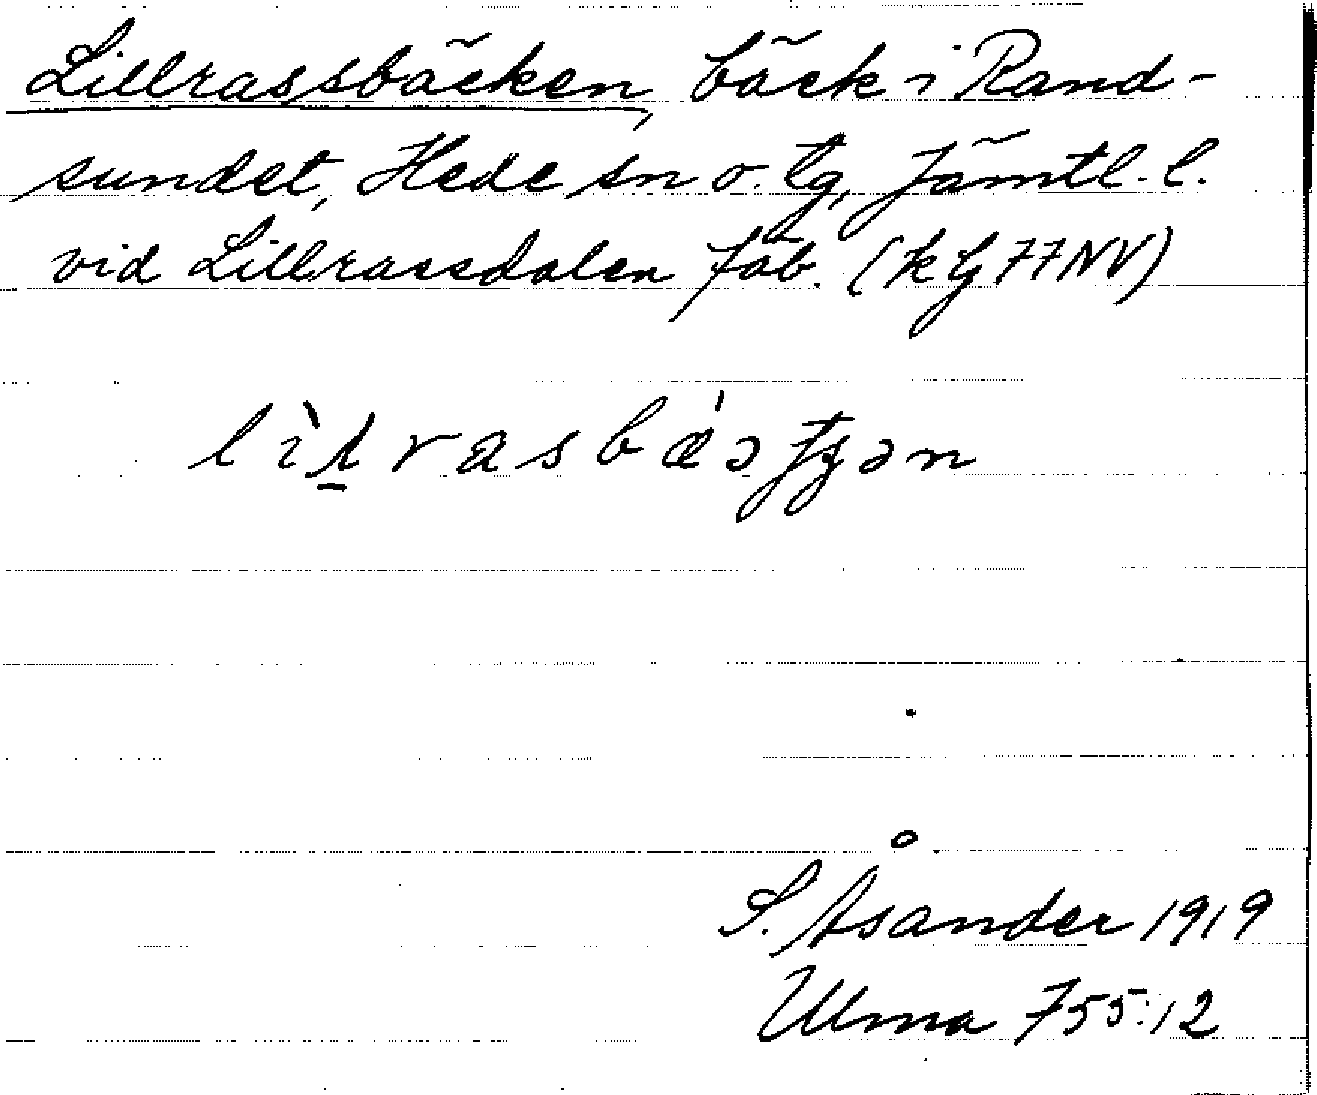 Lillrassbäcken, bäck i Rand-
sundet, Hede sn o. tg, Jämtl. l.
vid Lillrassdalen fäb. (k bl 77NV)
S. Åsander 1919
Ulma 755:12